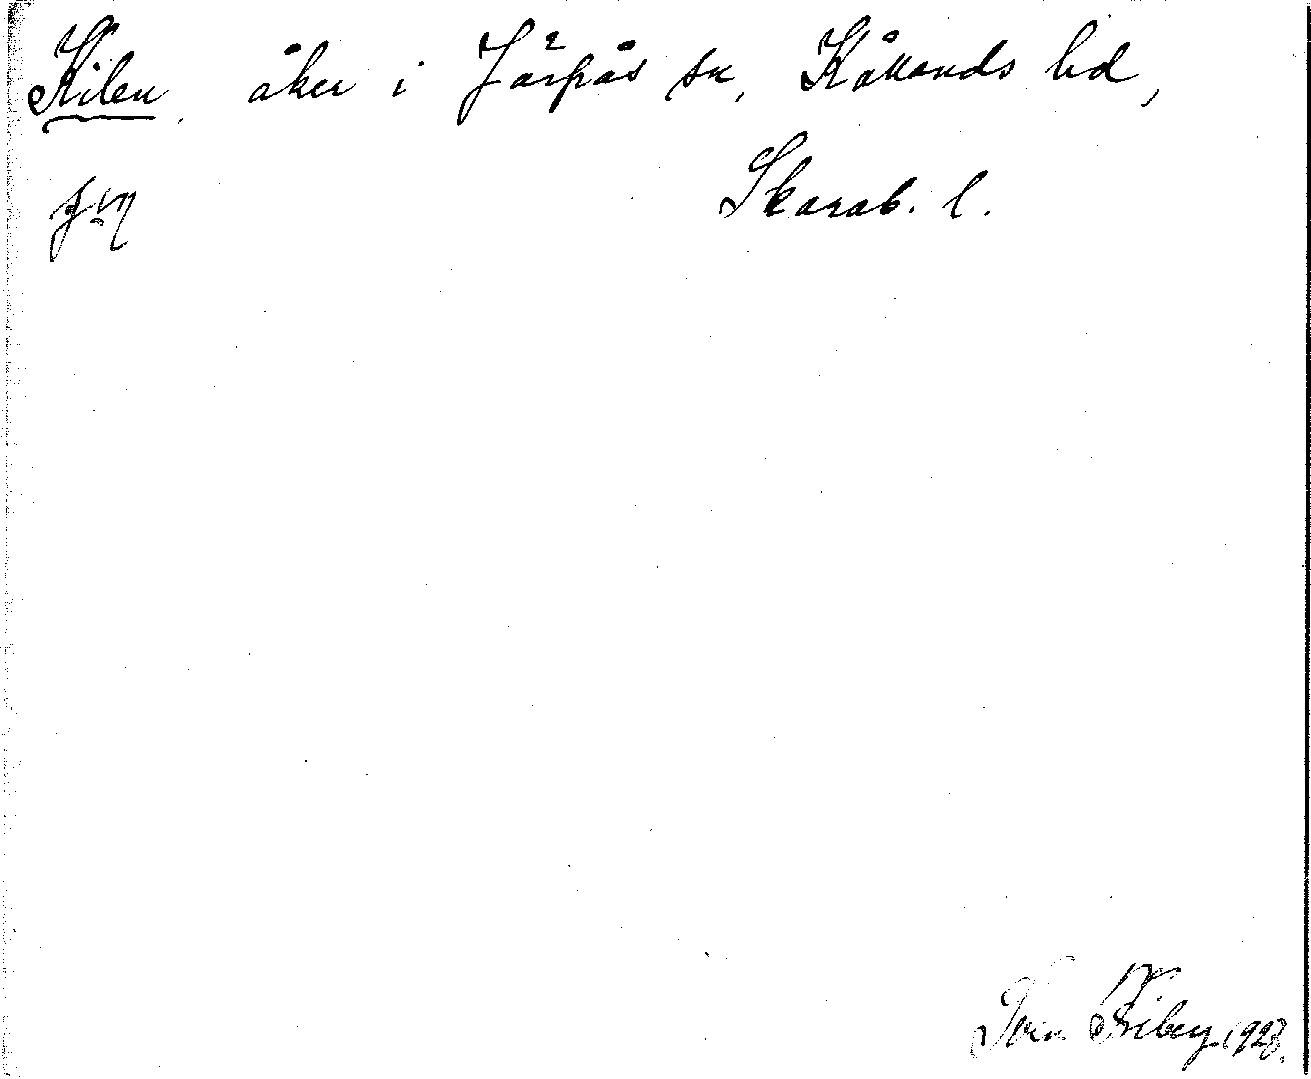 Kilen, åker i Järpås sn, Kållands hd,
Skarab. l.
Sven Friberg 1928.